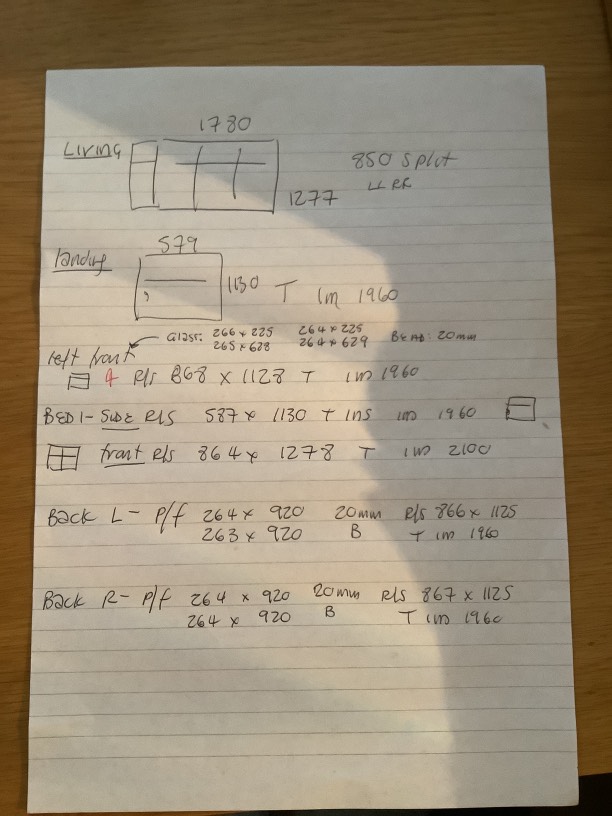 1780
Living
850 split
LL RR
1277
579
landing
1130 T IM 1960
Glass: 266 x 225 264 x 225 Bead: 20mm
265 x 628 264 x 629
left front
4 R/s 868 x 1128 T IM 1960
BED 1 - SIDE R/S 587 x 1130 T INS IM 1960
front R/s 864 x 1278 T IM 2100
Back L - P/f 264 x 920 20mm R/s 866 x 1125
263 x 920 B T IM 1960
Back R - P/f 264 x 920 20mm R/s 867 x 1125
264 x 920 B T IM 1960